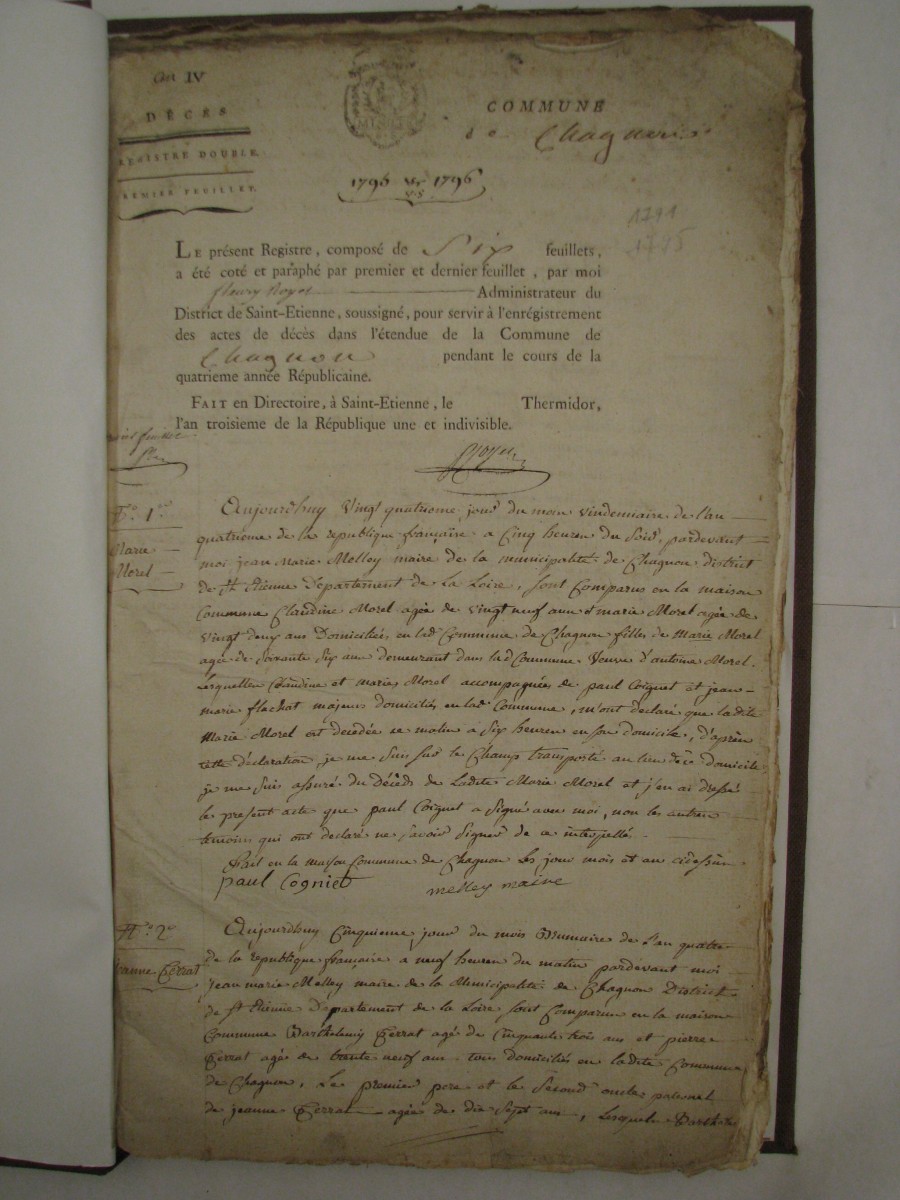 IV
DÉCÈS
REGISTRE DOUBLE.
PREMIER FEUILLET.
COMMUNE
de Chagnon
1795 1796
V.S
1791
1795
LE présent Registre, composé de Six feuillets,
a été coté et paraphé par premier et dernier feuillet, par moi
fleury Royer Administrateur du
District de Saint-Etienne, soussigné, pour servir à l'enrégistrement
des actes de décès dans l'étendue de la Commune de
Chagnon pendant le cours de la
quatrieme année Républicaine.
FAIT en Directoire, à Saint-Etienne, le Thermidor,
l'an troisieme de la République une et indivisible.
Royer
N.o 1.er
Marie
Morel
Aujourdhuy Vingt quatrieme jour du mois Vindemiaire de l'an
quatrieme de la republique francaise a Cinq heures du Soir, pardevant
moi jean Marie Melley maire de la municipalité de Chagnon district
de St Etienne Departement de la Loire, sont Comparus en la maison
Commune Claudine Morel agée de Vingt neuf ans et marie Morel agée de
Vingt deux ans Domiciliées en lad Commune de Chagnon filles de Marie Morel
agée de Soixante Six ans demeurant dans lad Commune Veuve d'antoine Morel.
Lesquelles Claudine et marie Morel accompagnées de paul Coignet et jean
marie flechat majeurs domiciliés en lad Commune, m'ont declaré que ladite
Marie Morel est decedée ce matin à Six heures en son domicile, d'après
cette déclaration je me Suis sur le Champ transporté au lieu de ce domicile
je me suis assuré du Décéds de Ladite Marie Morel et j'en ai dressé
le present acte que paul Coignet a Signé avec moi, non les autres
temoins qui ont declaré ne savoir Signer de ce interpellés.
Fait en la maison Commune de Chagnon les jour mois et an cidessus
paul Cogniet melley maire
N.o 2.e
Jeanne Perrat
Aujourdhuy Cinquieme jour du mois Brumaire de l'an quatre
de la republique francaise a neuf heures du matin pardevant moi
jean marie Melley maire de la Municipalité de Chagnon District
de St Etienne Departement de la Loire sont Comparus en la maison
Commune Barthelemy Perrat agé de Cinquante trois ans et pierre
Perrat agé de trente neuf ans tous domiciliés en ladite Commune
de Chagnon, Le premier pere et le Second oncle paternel
de jeanne Perrat agée de dix Sept ans, Lesquels Barthele